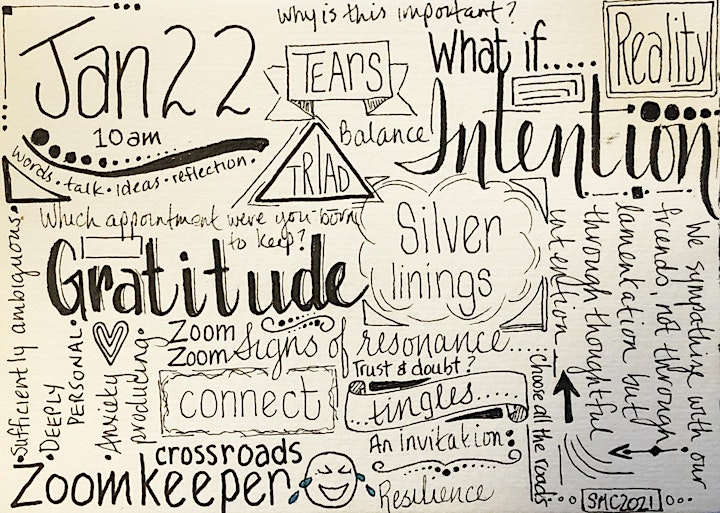 Why is this important?
Jan 22
10am
words. talk. ideas. reflection.
TEARS
What if.....
Reality
Balance
TRIAD
Intention
Which appointment were you born
to keep?
Silver
linings
Gratitude
Sufficiently ambiguous.
DEEPLY
PERSONAL.
Anxiety
producing.
Zoom
Zoom
Signs of resonance.....
Trust & doubt?
connect
...tingles....
An Invitation:
Resilience
crossroads
Zoomkeeper
Choose all the roads
We sympathize with our
friends, not through
lamentation but
through thoughtful
intention
SMC2021